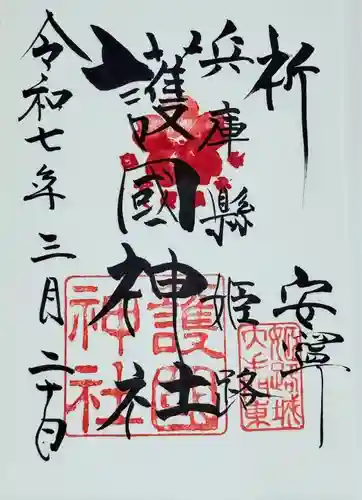 祈
安寧
兵庫縣姫路
護國神社
令和七年三月二十日
護国
神社
姫路城